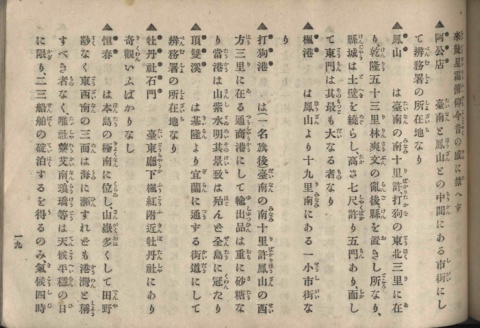 ▲阿公店　臺南と鳳山との中間にある市街にし
て辨務署の所在地なり
▲鳳山　は臺南の南十里許、打狗の東北三里に在
り、乾隆五十三里林爽文の亂後縣を置きし所なり、
縣城は土壁を繞らし、高さ七尺許り五門あり、而し
て東門は其最も大なる者なり
▲楓港　は鳳山より十九里南にある一小市街な
り
▲打狗港　は(一名旗後臺南の南十里許鳳山の西
方三里に在る通商港にして輸出品は重に砂糖な
り當港は山紫水明其景致は殆んと全島に冠たり
▲頂雙溪　は基隆より宜蘭に通する街道にして
辨務署の所在地なり
▲牡丹社石門　臺東廳下楓紅附近牡丹社にあり
奇觀いふばかりなし
▲恒春　は本島の極南に位し、山嶽多くして田野
尠なく東西南の三面は海に瀕すれとも港灣と稱
すべき者なく、唯鼓艾南瑀等は天候平穩の日
に限り、二三船舶の碇泊するを得るのみ氣候四時
一九